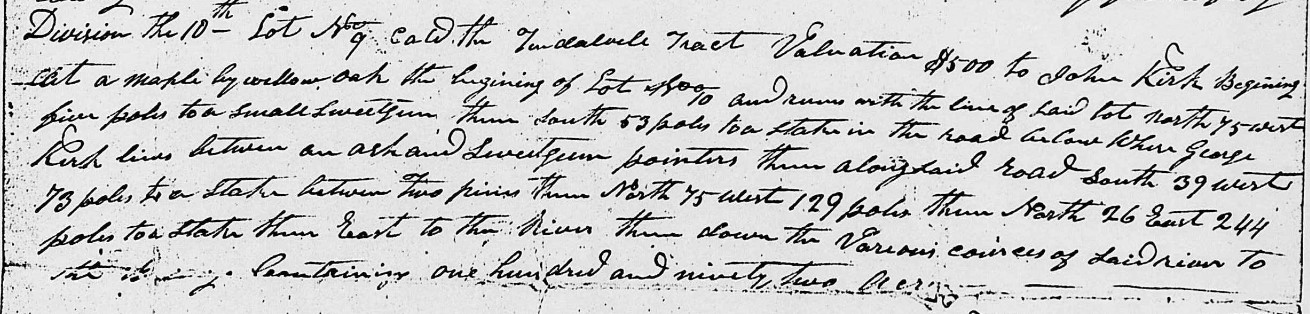 Division the 10th Lot No 9 cald the Tindalvele Tract Valuation $500 to John Kirk Begining
at a maple by willow oak the begining of Lot No 10 and runs with the line of said lot north 75 west
five poles to a small Sweetgum then South 53 poles to a Stake in the road below Where George
Kirk lives between an ash and Sweetgum pointers then along said road South 39 west
73 poles to a Stake between two pines then North 75 West 129 poles then North 26 East 244
poles to a Stake then East to the River then down the Various cources of said river to
the Containing one hundred and ninety two Acres